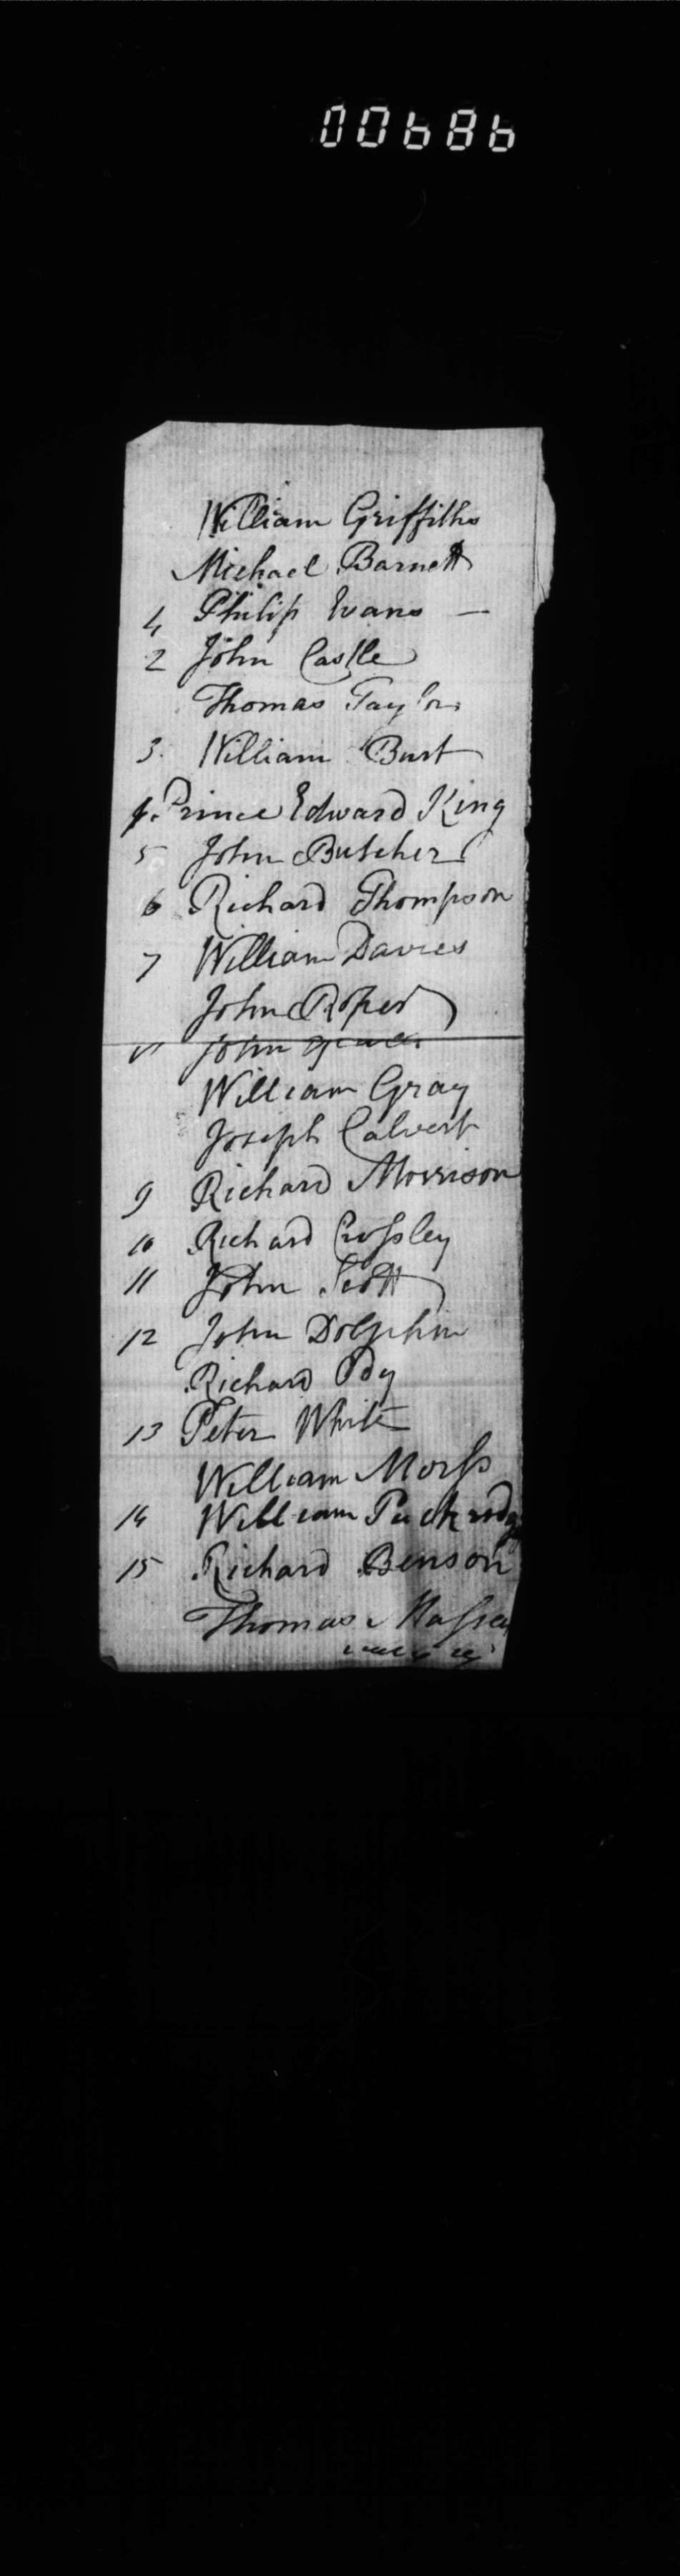 00686
William Griffiths
Michael Barnett
4 Philip Evans —
2 John Castle
Thomas Taylor
3. William Burt
4. Prince Edward King
5 John Butcher
6 Richard Thompson
7 William Davies
John Roper
John
William Gray
Joseph Calvert
9 Richard Morrison
10 Richard Crossley
11 John Scott
12 John Dolphin
Richard Ody
13 Peter White
William Morss
14 William Puckridg
15 Richard Benson
Thomas